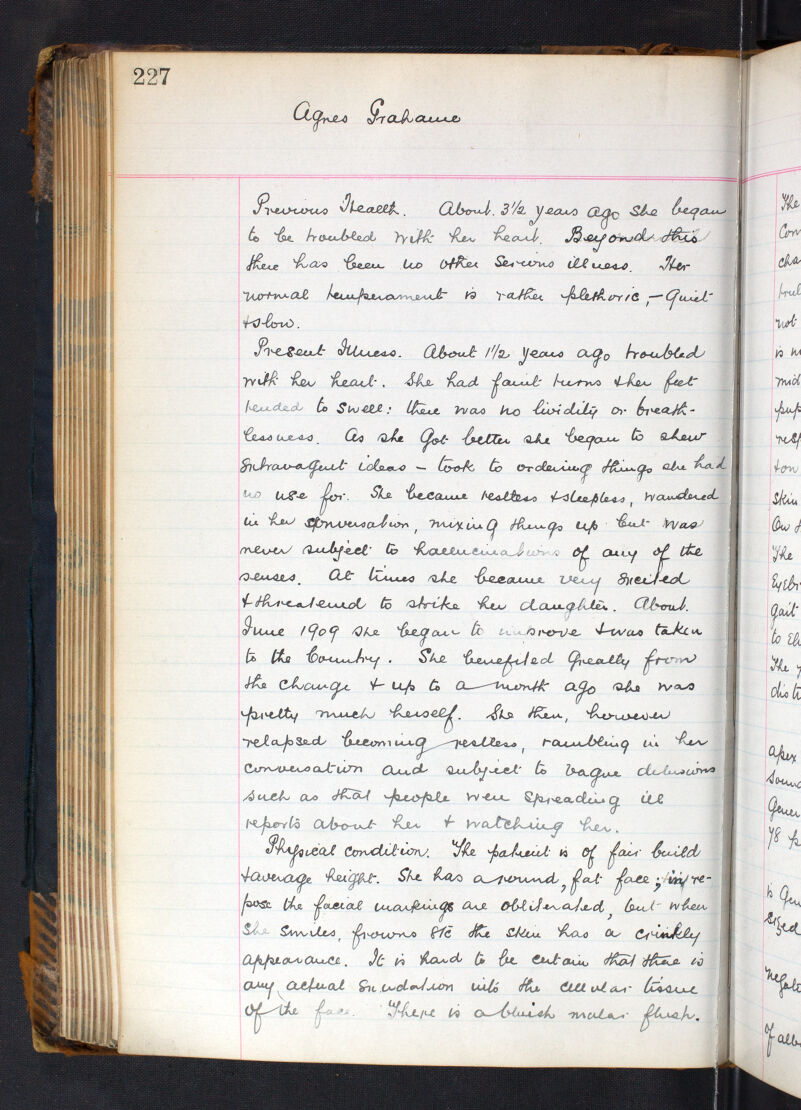 227
Agnes Grahame
Previous Health. About 3 1/2 years ago she began
to be troubled with her heart. Beyond this
there has been no other serious illness. Her
normal temperament is rather plethoric, – quiet
& slow.
Present Illness. About 1 1/2 years ago troubled
with her heart. She had faint turns & her feet
tended to swell: there was no lividity or breath-
lessness. As she got better she began to shew
extravagent ideas – took to ordering things she had
no use for. She became restless & sleepless, wandered
in her conversation, mixing things up but was
never subject to hallucinations of any of the
senses. At times she became very excited
& threatened to strike her daughter. About
June 1909 she began to improve & was taken
to the Country. She benefited greatly from
the change & up to a month ago she was
pretty much herself. She then, however
relapsed becoming restless, rambling in her
conversation and subject to vague delusions
such as that people were spreading ill
reports about her & watching her.
Physical condition. The patient is of fair build
& average height. She has a round, fat face; in re-
pose the facial markings are obliterated, but when
she smiles, frowns etc the skin has a crinkly
appearance. It is hard to be certain that there is
any actual exudation into the cellular tissue
of the face. There is a bluish malar flush.
The
Con
cha
not
is
mid
pup
& on
skin
On
The
Eyebr
gait
to
The
dist
apex
sound
Gener
78 p
is Gen
sized
negat
of alb